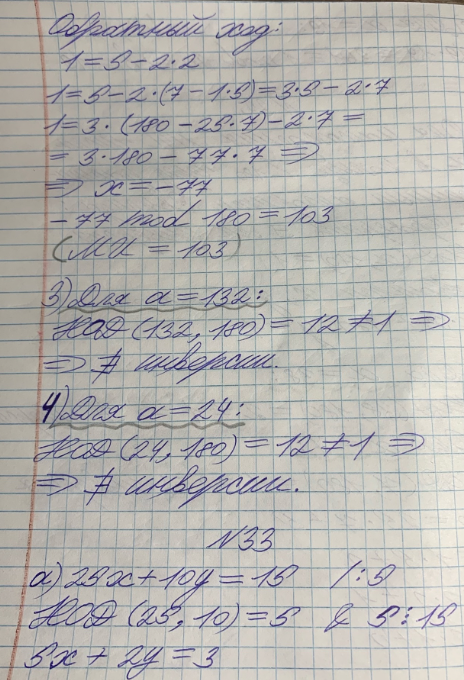 Обратный ход:
1=5-2·2
1=5-2·(7-1·5)=3·5-2·7
1=3·(180-25·7)-2·7=
=3·180-77·7 ⇒
⇒ x=-77
-77 mod 180=103
(МИ=103)
3) Для a=132:
НОД (132, 180)=12≠1 ⇒
⇒ ∄ инверсии.
4) Для a=24:
НОД (24, 180)=12≠1 ⇒
⇒ ∄ инверсии.
N33
a) 25x+10y=15 /:5
НОД (25, 10)=5 & 5⋮15
5x+2y=3